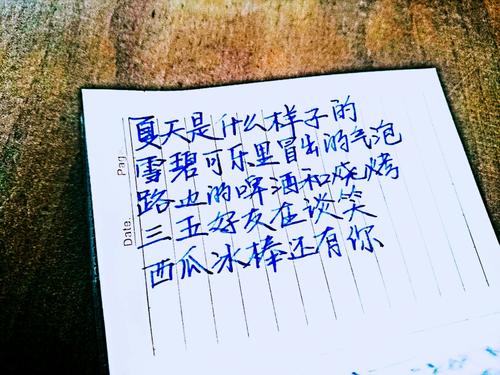 夏天是什么样子的
雪碧可乐里冒出的气泡
路边的啤酒和烧烤
三五好友在谈笑
西瓜冰棒还有你
Date.